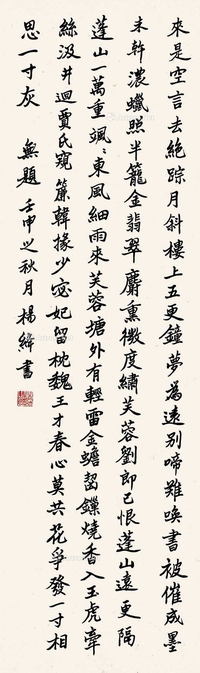 來是空言去絶踪月斜樓上五更鐘夢為遠別啼難喚書被催成墨
未幹濃蠟照半籠金翡翠麝熏微度繡芙蓉劉郎已恨蓬山遠更隔
蓬山一萬重颯〻東風細雨來芙蓉塘外有輕雷金蟾齧鏁燒香入玉虎牽
絲汲井迴賈氏窺簾韓掾少宓妃留枕魏王才春心莫共花爭發一寸相
思一寸灰 無題 壬申之秋月楊絳書